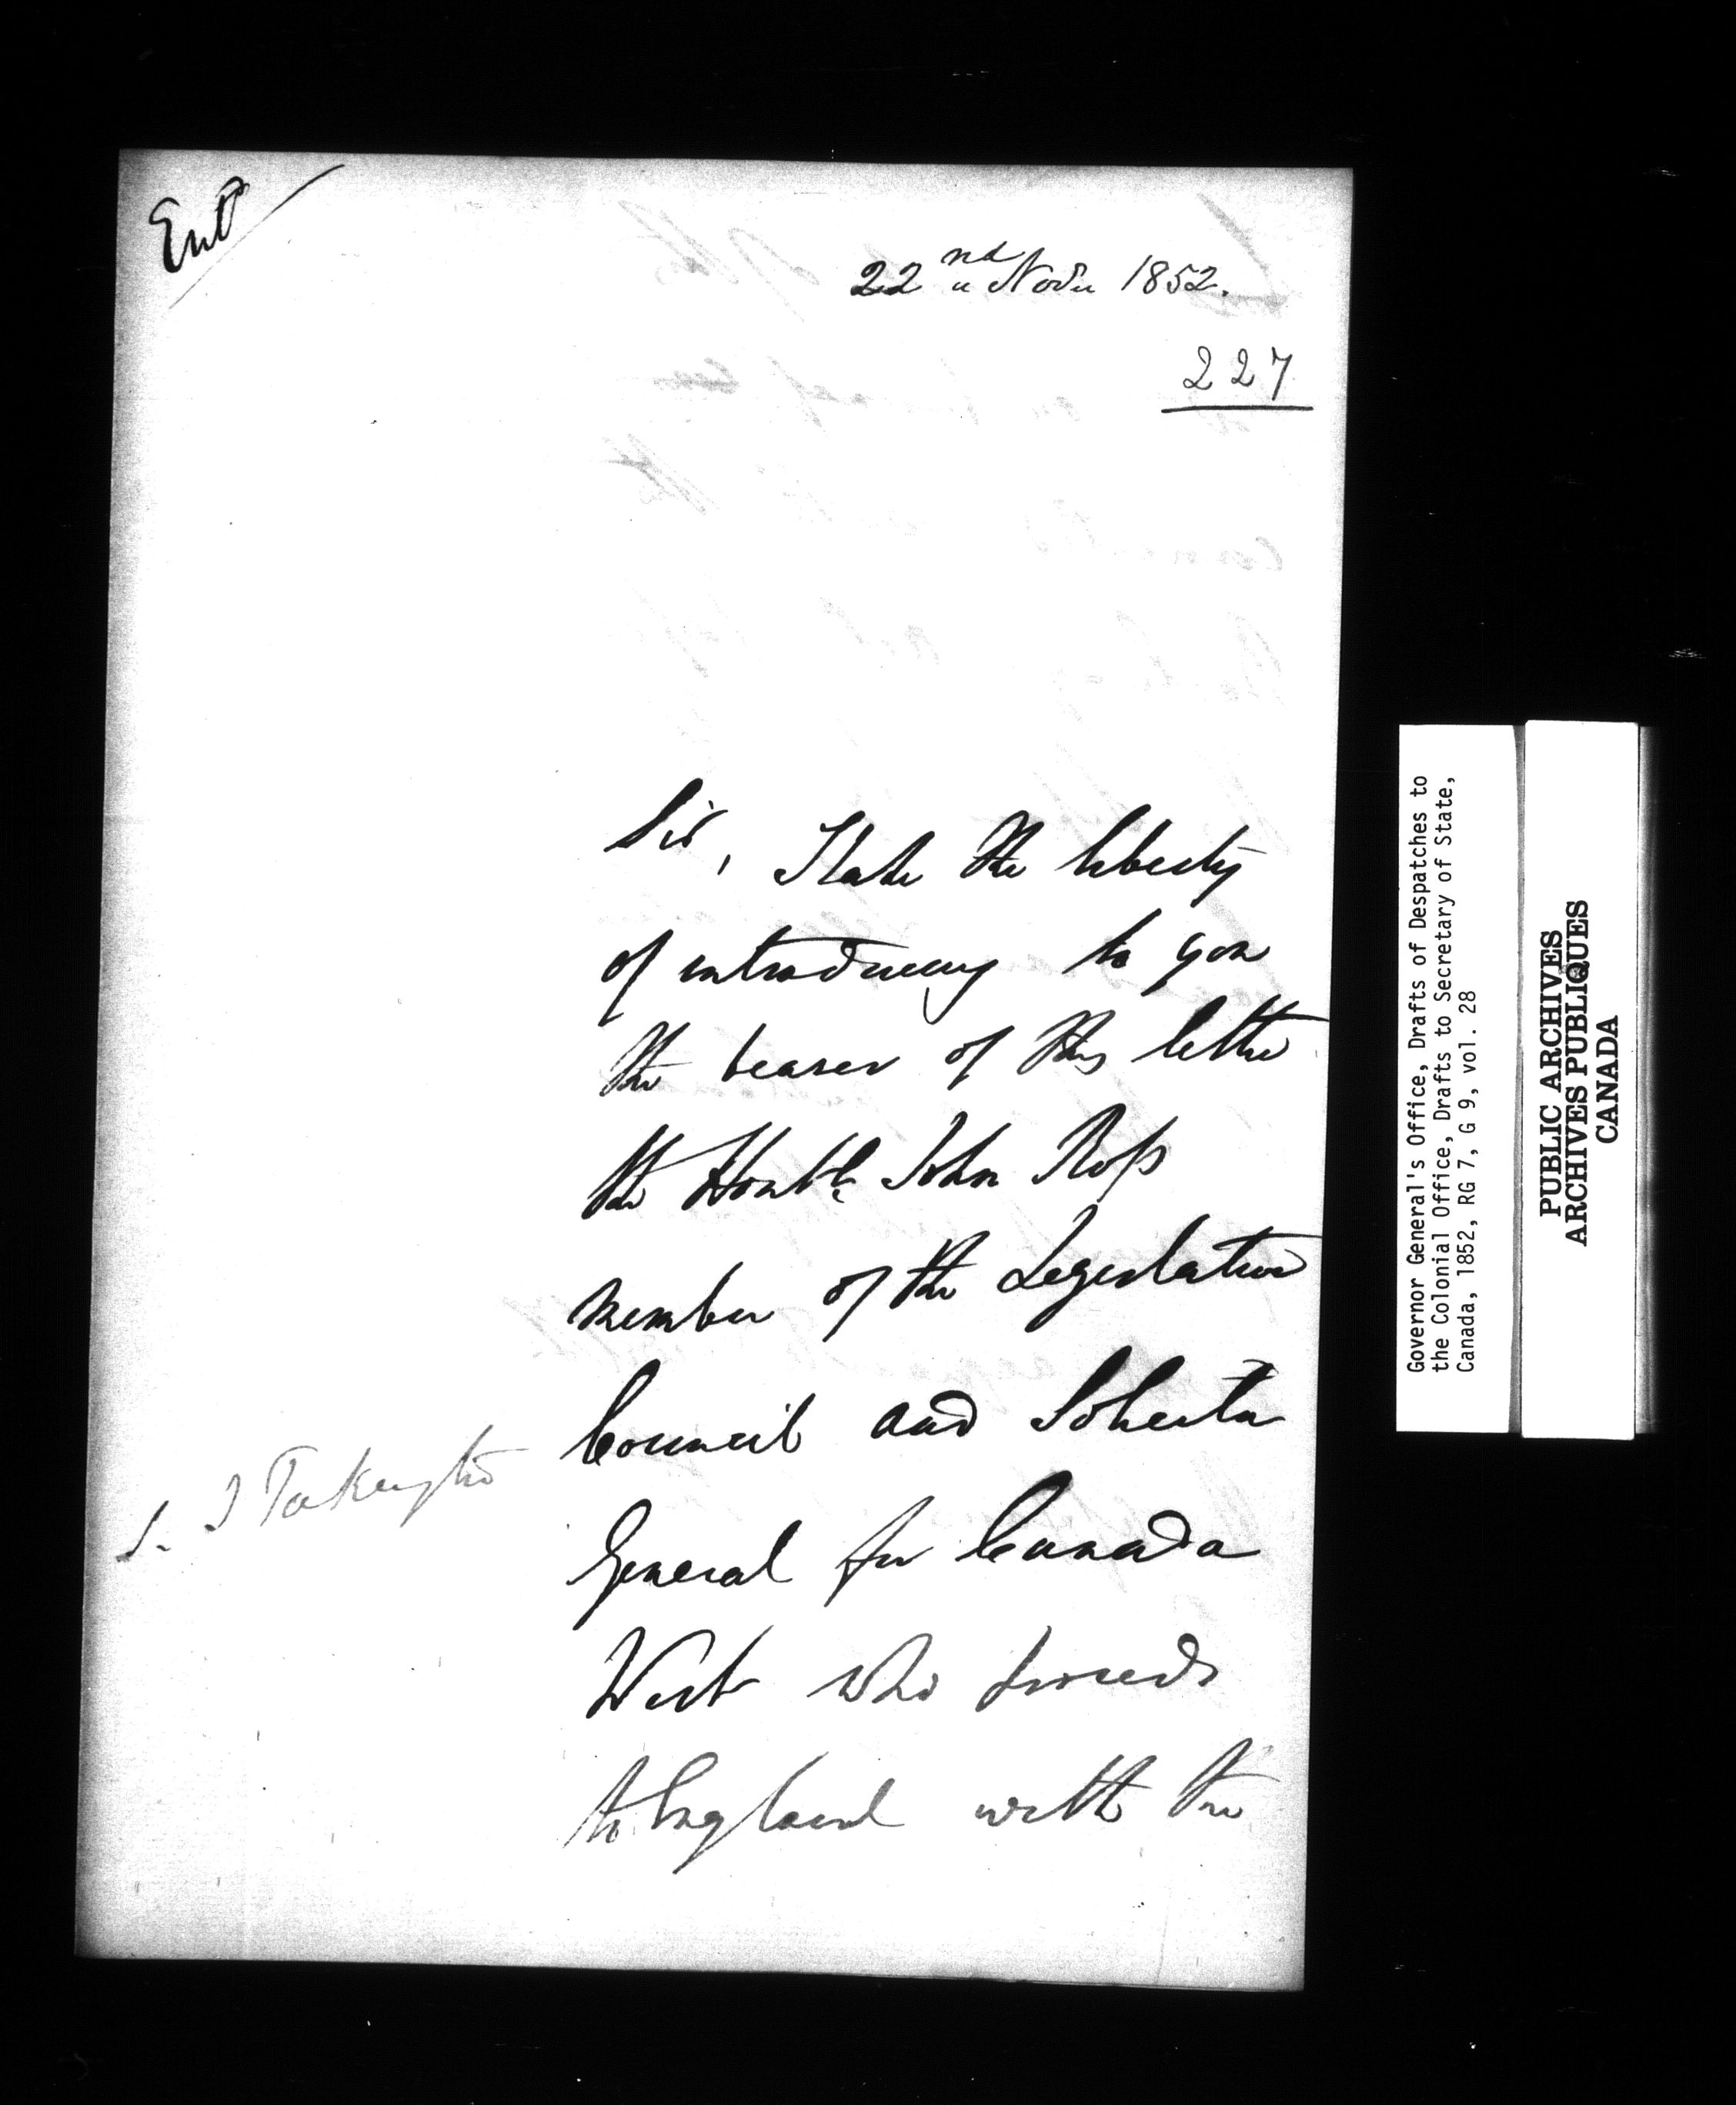 Entd
22nd Novr 1852.
227
Sir, I take the liberty
of introducing to you
the bearer of this letter
the Honble John Ross
member of the Legislative
Council and Solicitor
General for Canada
West who proceeds
to England with the
Governor General's Office, Drafts of Despatches to
the Colonial Office, Drafts to Secretary of State,
Canada, 1852, RG 7, G 9, vol. 28
PUBLIC ARCHIVES
ARCHIVES PUBLIQUES
CANADA